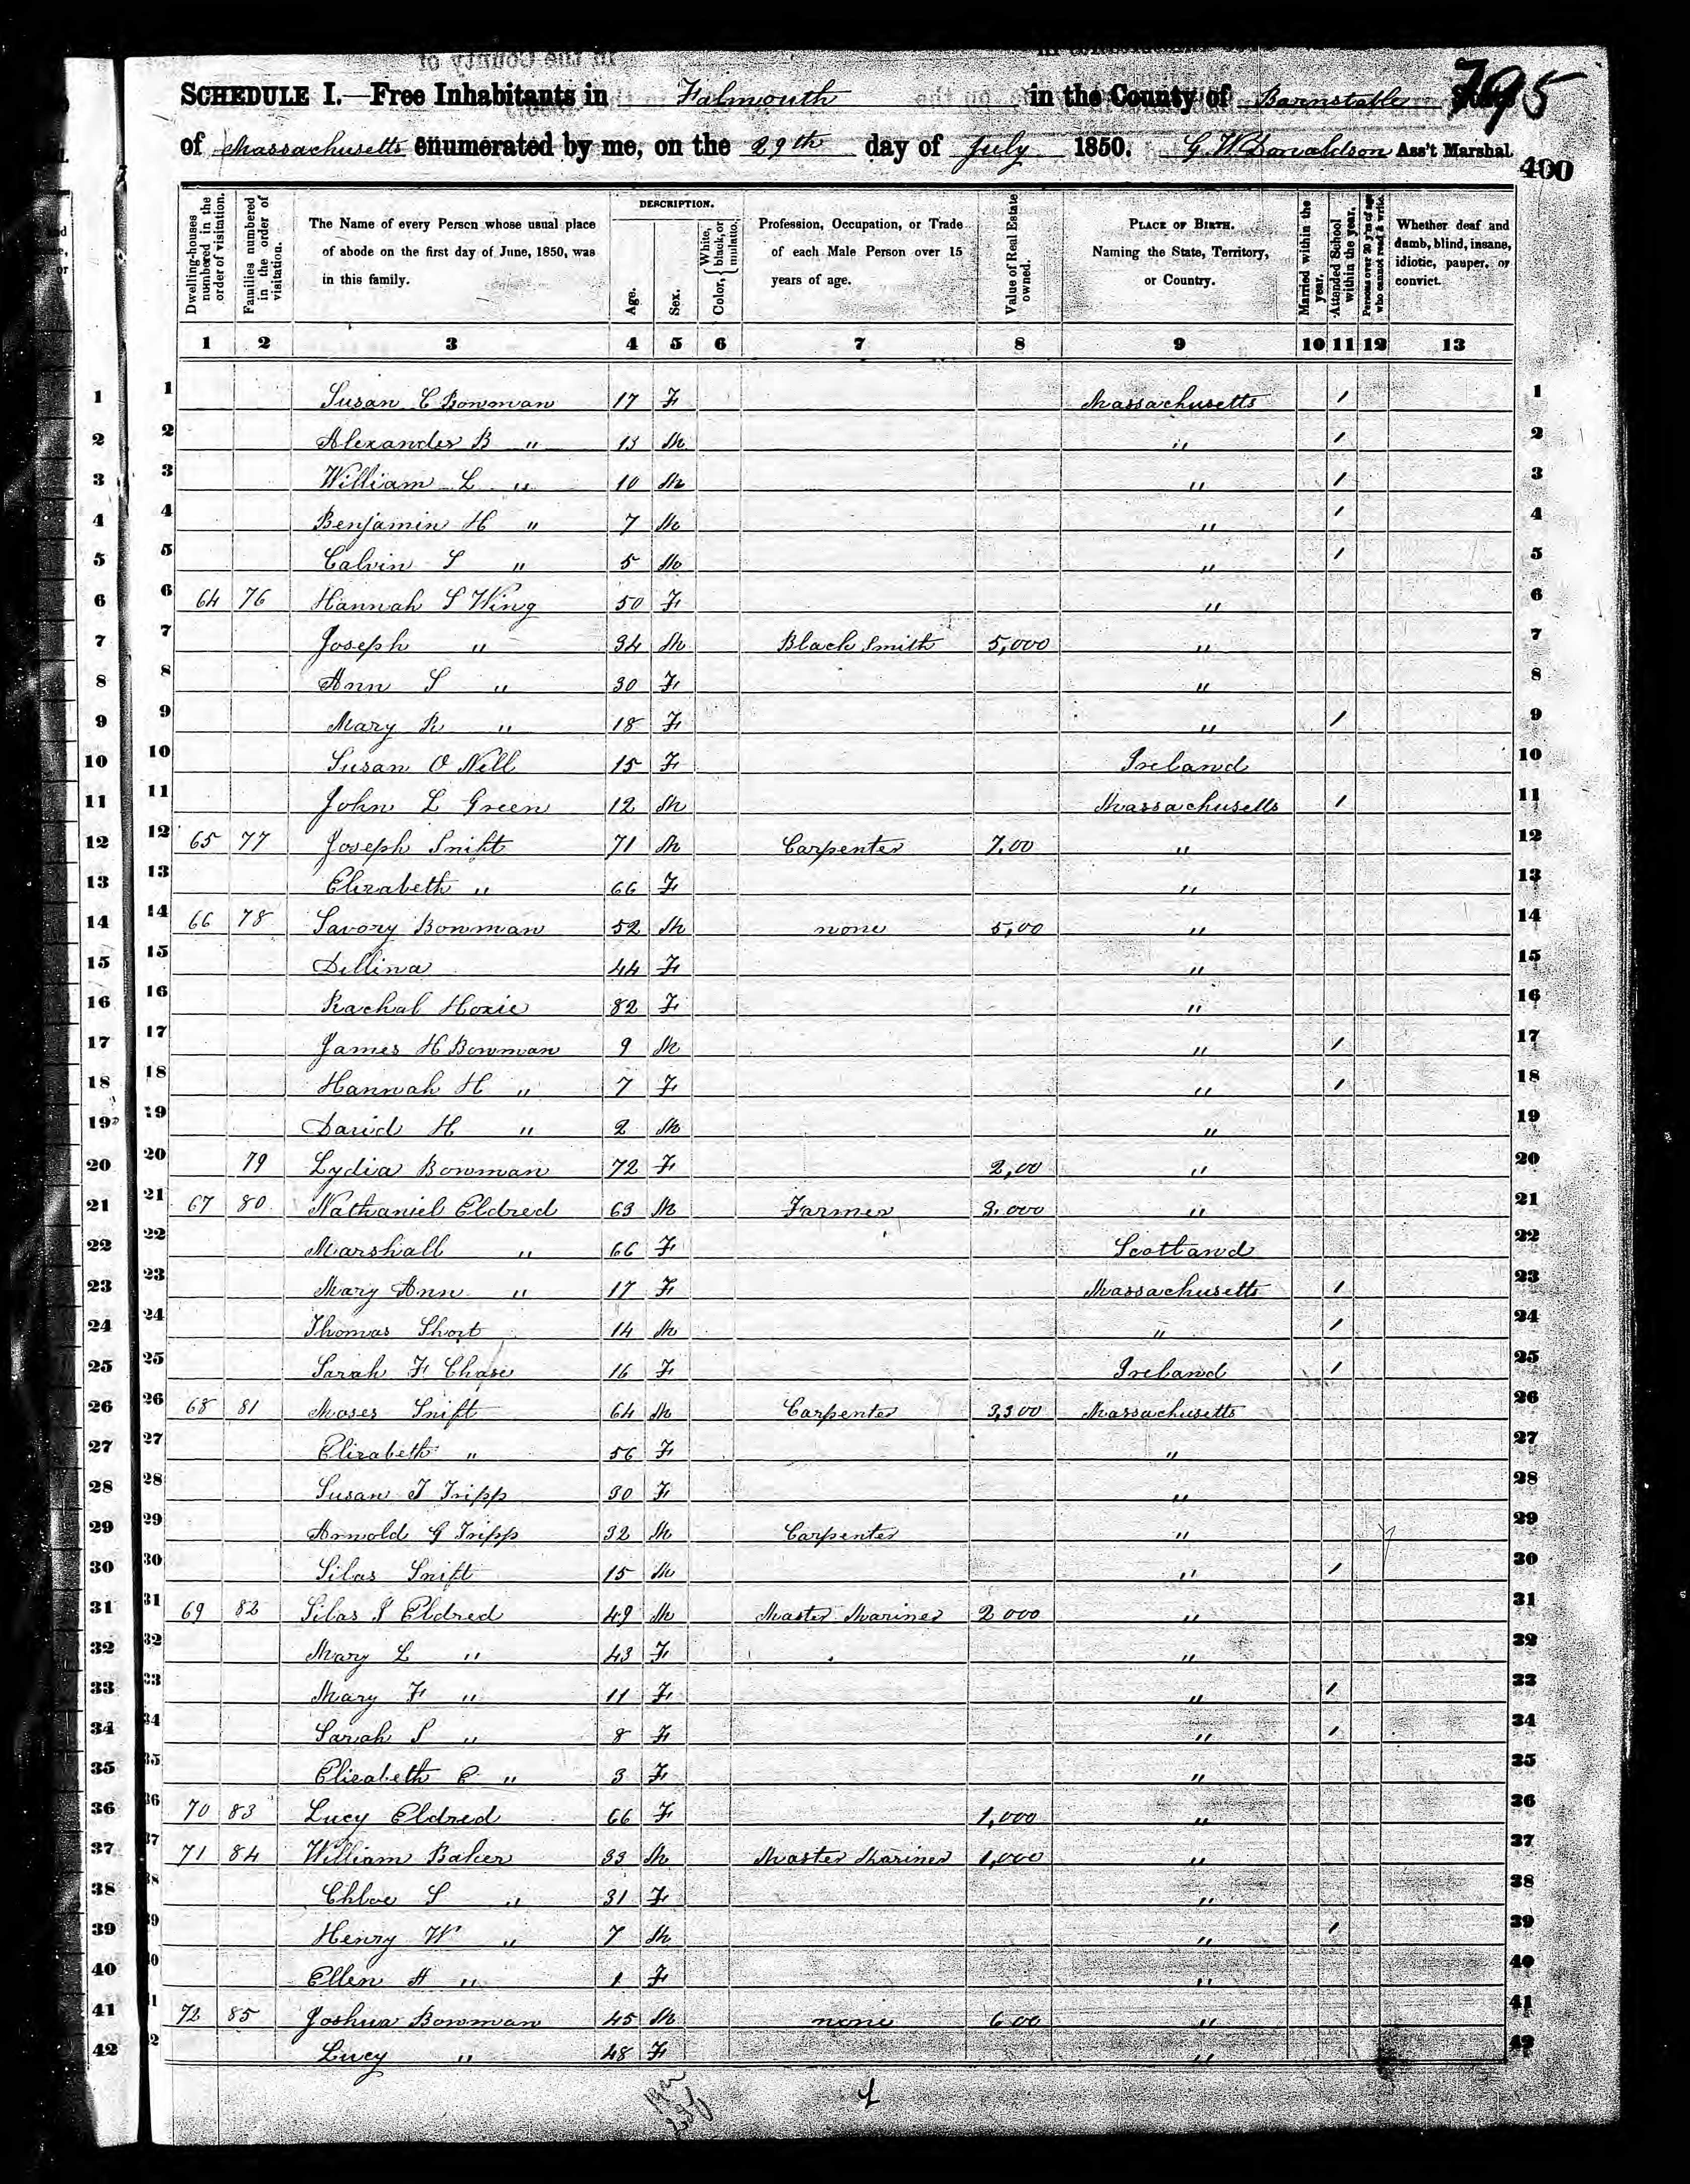 795
SCHEDULE I.—Free Inhabitants in Falmouth in the County of Barnstable
of Massachusetts enumerated by me, on the 29th day of July 1850. G. W. Donaldson Ass't Marshal.
400
Dwelling-houses numbered in the order of visitation.
Families numbered in the order of visitation.
The Name of every Person whose usual place of abode on the first day of June, 1850, was in this family.
DESCRIPTION.
Age.
Sex.
Color, { White, black, or mulatto.
Profession, Occupation, or Trade of each Male Person over 15 years of age.
Value of Real Estate owned.
PLACE OF BIRTH. Naming the State, Territory, or Country.
Married within the year.
Attended School within the year.
Persons over 20 y'rs of age who cannot read & write.
Whether deaf and dumb, blind, insane, idiotic, pauper, or convict.
1 2 3 4 5 6 7 8 9 10 11 12 13
1 1 Susan C Bowman 17 F Massachusetts / 1
2 2 Alexander B " 13 M " / 2
3 3 William L " 10 M " / 3
4 4 Benjamin H " 7 M " / 4
5 5 Calvin S " 5 M " / 5
6 6 64 76 Hannah S Wing 50 F " 6
7 7 Joseph " 34 M Black Smith 5,000 " 7
8 8 Ann S " 30 F " 8
9 9 Mary R " 18 F " / 9
10 10 Susan O Nell 15 F Ireland 10
11 11 John L Green 12 M Massachusetts / 11
12 12 65 77 Joseph Swift 71 M Carpenter 7.00 " 12
13 13 Elizabeth " 66 F " 13
14 14 66 78 Savory Bowman 52 M none 5,00 " 14
15 15 Dellina 44 F " 15
16 16 Rachal Hoxie 82 F " 16
17 17 James H Bowman 9 M " / 17
18 18 Hannah H " 7 F " / 18
19 19 David H " 2 M " 19
20 20 79 Lydia Bowman 72 F 2,00 " 20
21 21 67 80 Nathaniel Eldred 63 M Farmer 3.000 " 21
22 22 Marshall " 66 F Scotland 22
23 23 Mary Ann " 17 F Massachusetts / 23
24 24 Thomas Short 14 M " / 24
25 25 Sarah F Chase 16 F Ireland / 25
26 26 68 81 Moses Swift 64 M Carpenter 3,300 Massachusetts 26
27 27 Elizabeth " 56 F " 27
28 28 Susan T Tripp 30 F " 28
29 29 Arnold G Tripp 32 M Carpenter " 29
30 30 Silas Swift 15 M " / 30
31 31 69 82 Silas S Eldred 49 M Master Mariner 2 000 " 31
32 32 Mary L " 43 F " 32
33 33 Mary F " 11 F " / 33
34 34 Sarah S " 8 F " / 34
35 35 Elizabeth C " 3 F " 35
36 36 70 83 Lucy Eldred 66 F 1,000 " 36
37 37 71 84 William Baker 33 M Master Mariner 1,000 " 37
38 38 Chloe S " 31 F " 38
39 39 Henry W " 7 M " / 39
40 40 Ellen H " 1 F " 40
41 41 72 85 Joshua Bowman 45 M none 600 " 41
42 42 Lucy " 48 F " 42